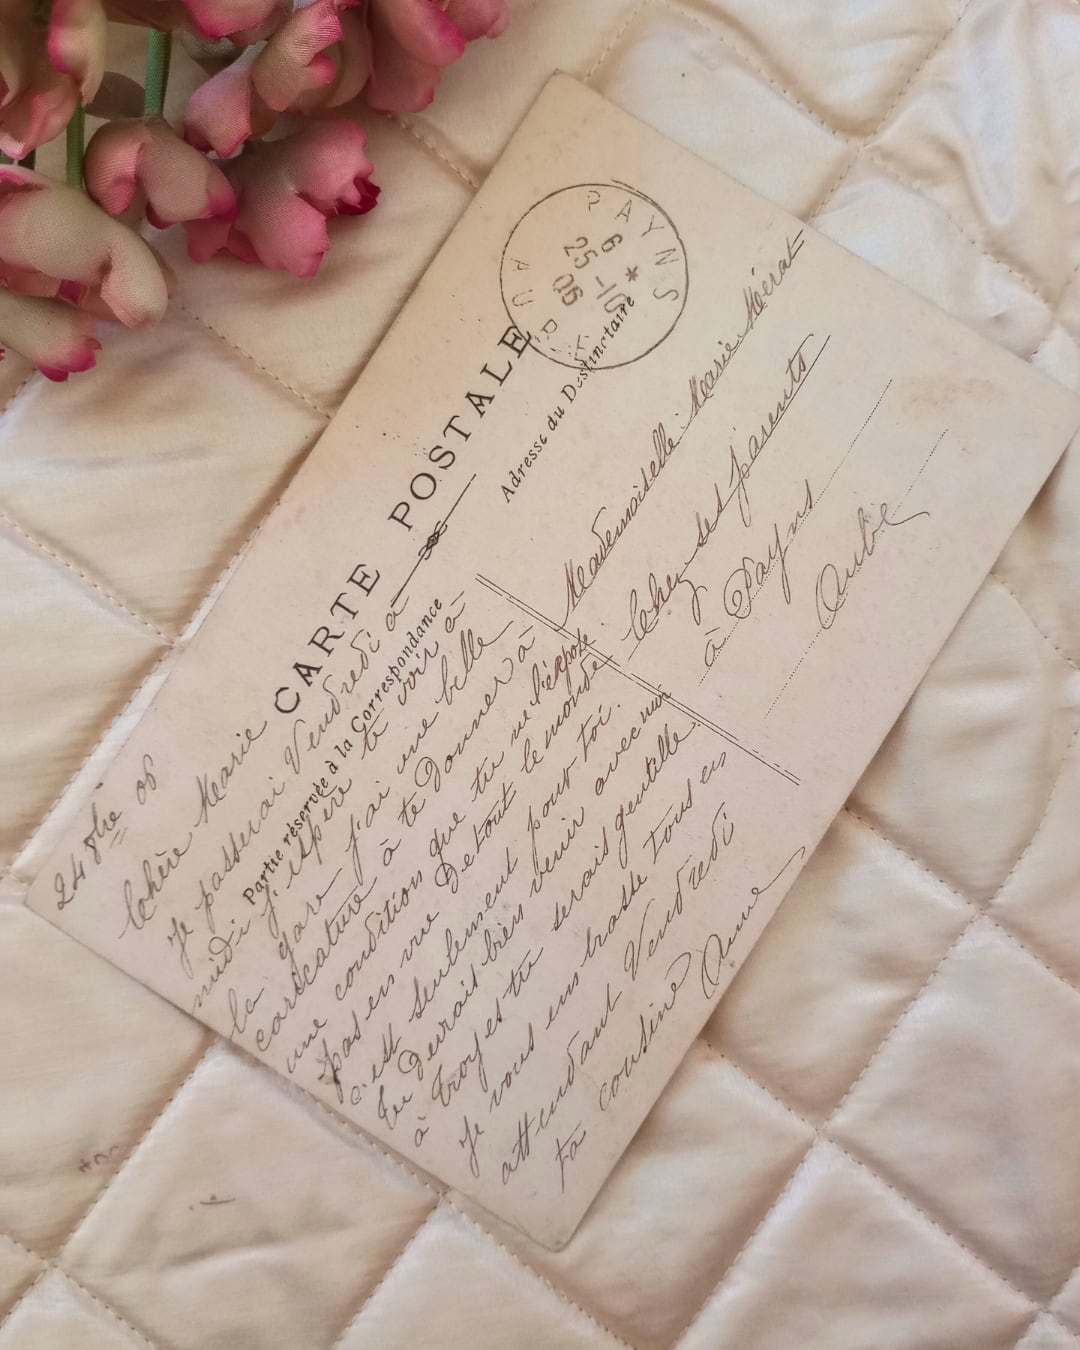 CARTE POSTALE
Partie réservée à la Correspondance
Adresse du Destinataire
PAYNS
6
25 -10
06
AUBE
24 8bre 06
Chère Marie
Je passerai Vendredi à
midi j'espère te voir à
la gare j'ai une belle
caricature à te donner à
une condition que tu ne l'expose
pas en vue De tout le monde
c'est seulement pour toi.
tu devrais bien venir avec moi
à Troyes tu serais gentille
Je vous embrasse tous en
attendant Vendredi
ta cousine Anne
Mademoiselle Marie Mérat
Chez ses parents
à Payns
Aube